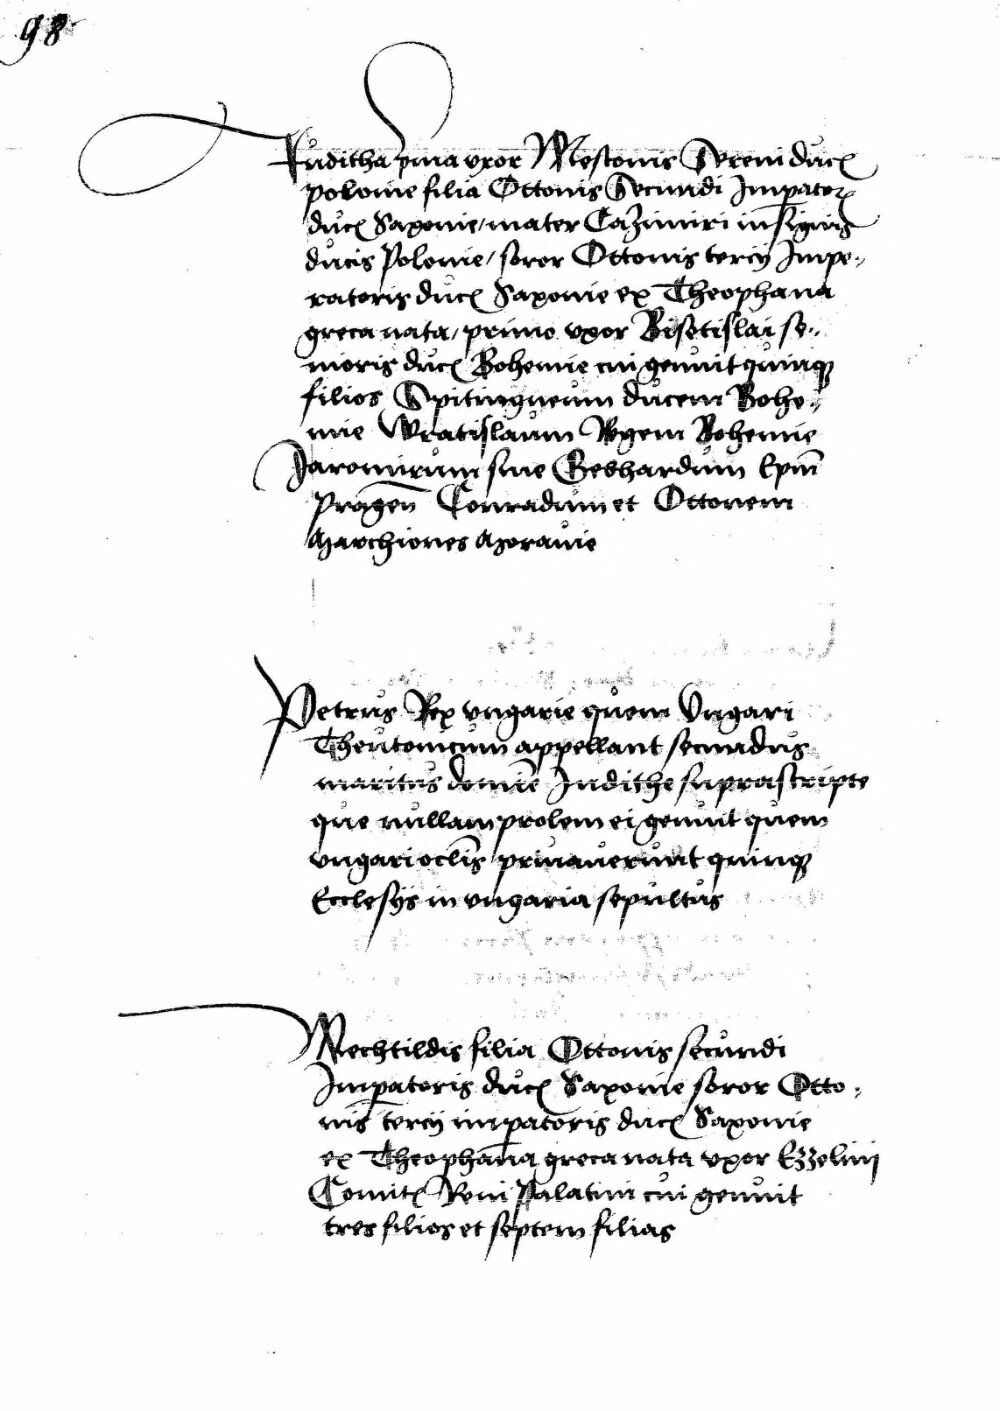 98
Juditha p̄ma vxor Mestonis Sereni ducꝭ
polonie filia Ottonis Secundi Impatorꝭ
ducꝭ Saxonie / mater Cazimiri insignis
ducis Polonie / soror Ottonis tercij Impe-
ratoris ducꝭ Saxonie ex Theophana
greca nata / primo vxor Bisetislai se-
nioris ducꝭ Bohemie cui genuit quinqꝫ
filios Spitingneum ducem Bohe-
mie Wratislaum Regem Bohemie
Jaromirum siue Gebhardum Epm̄
pragen̄ Conradum et Ottonem
Marchiones Morauie
Petrus Rex vngarie quem Vngari
Theutonicum appellant secundus
maritus domīe Judithe suprascripte
que nullam prolem ei genuit quem
vngari ocl̄is priuauerunt quinqꝫ
Ecclesijs in vngaria sepultus
Mechtildis filia Ottonis secundi
Imp̄atoris ducꝭ Saxonie soror Otto-
nis tercij imp̄atoris ducꝭ Saxonie
ex Theophana greca nata vxor Ezzelini
Comitꝭ Reni Palatini cui genuit
tres filios et septem filias